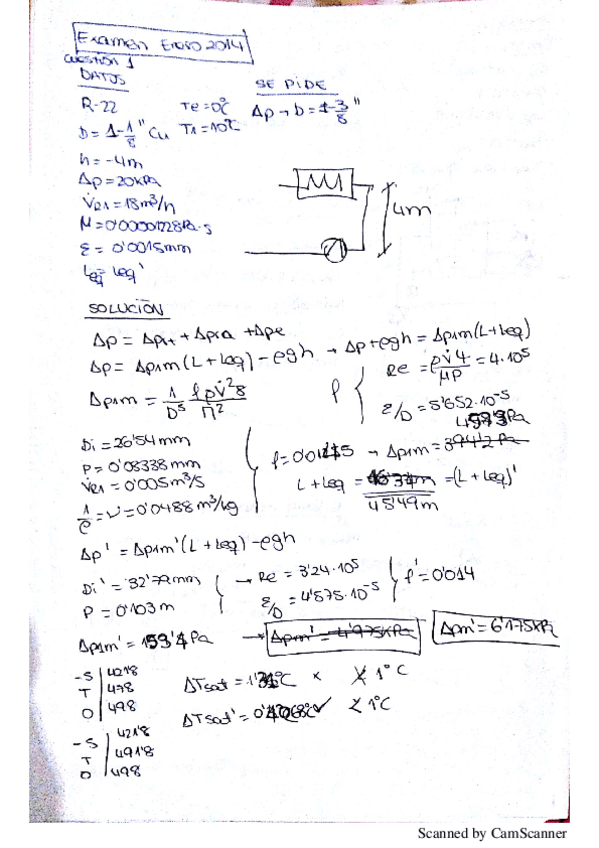 Examen Enero 2014
CUESTIÓN 1
DATOS
SE PIDE
R-22 Te = 0°C Δp → b = 1-3/8"
D = 1-1/8" Cu T1 = 10°C
h = -4m
Δp = 20 kPa
V̇R1 = 18 m³/h
4m
M = 0'00001228 Pa·s
ε = 0'0015mm
Leq = Leq'
SOLUCIÓN
Δp = Δprt + Δpra + Δpe
Δp = Δp1m (L + Leq) - ρgh → Δp + ρgh = Δp1m (L + Leq)
Δp1m = 1/D⁵ fρV̇²8/Π²
f { Re = ρV̇4/μP = 4·10⁵
ε/D = 5'652·10⁻⁵
Di = 26'54 mm
P = 0'08338 mm
V̇R1 = 0'005 m³/s
1/ρ = ν = 0'0488 m³/kg
→ Δp1m =
L + Leq = = (L + Leq)'
45'49m
Δp' = Δp1m' (L + Leq) - ρgh
Di' = 32'79 mm
P = 0'103 m
→ Re = 3'24·10⁵
ε/D = 4'575·10⁻⁵
f' = 0'014
Δp1m' = Pa → Δpm' = 4'975 kPa Δpm' = 6'175 kPa
-S 421'8
T 478
0 498
ΔTsat = °C x 1°C
ΔTsat' = °C ✓ < 1°C
-S 421'8
T 491'8
0 498
Scanned by CamScanner